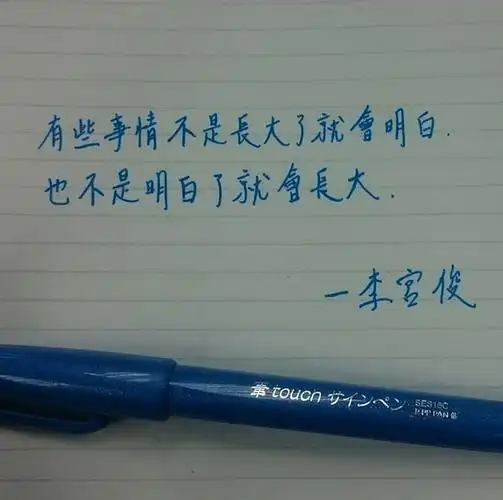 有些事情不是長大了就會明白.
也不是明白了就會長大.
—李宮俊
筆touch サインペン SES15C
JAPAN